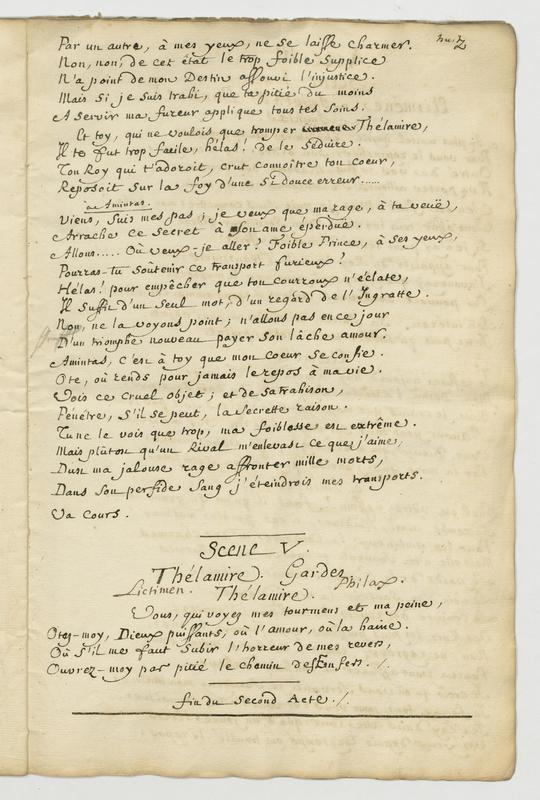 Par un autre, à mes yeux, ne se laisse charmer.
Non, non, de cet état le trop foible supplice
N'a point de mon Destin assouvi l'injustice.
Mais si je suis trahi, que ta pitié du moins
A servir ma fureur applique tous tes soins.
Et toy, qui ne voulois que tromper Thélamire,
Il te fut trop facile, hélas! de le séduire.
Ton Roy qui t'adoroit, crut connoître ton coeur,
Reposoit sur la foy d'une si douce erreur......
à Amintas.
Viens, suis mes pas; je veux que ma rage, à ta veüe,
Arrache ce secret à son ame éperdüe.
Allons..... Où veux-je aller? Foible Prince, à ses yeux,
Pourras-tu soutenir ce transport furieux?
Hélas! pour empêcher que ton courroux n'éclate,
Il suffit d'un seul mot, d'un regard de l'Ingratte.
Non, ne la voyons point; n'allons pas en ce jour
D'un triomphe nouveau payer son lâche amour.
Amintas, c'est à toy que mon coeur se confie.
Ote, où rends pour jamais le repos à ma vie.
Vois ce cruel objet; et de sa trahison,
Pénétre, s'il se peut, la secrette raison.
Tu ne le vois que trop, ma foiblesse est extrême.
Mais plûtost qu'un Rival m'enlevast ce que j'aime,
Dust ma jalouse rage affronter mille morts,
Dans son perfide sang j'éteindrois mes transports.
Va cours.
Scene V.
Thélamire. Gardes
Lictimen. Thélamire. Philax.
Vous, qui voyez mes tourmens et ma peine,
Otez-moy, Dieux puissants, où l'amour, où la haine.
Où s'il me faut subir l'horreur de mes revers,
Ouvrez-moy par pitié le chemin des Enfers. /.
fin du Second Acte. /.